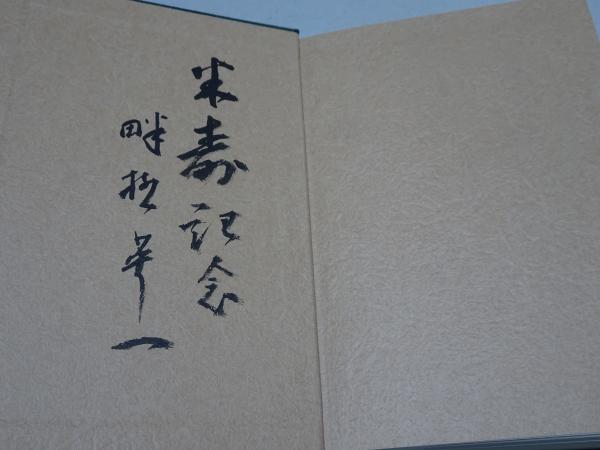 米寿記念
畔柳華一